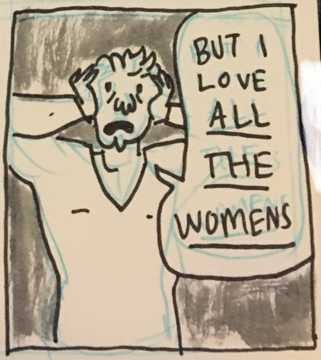 BUT I
LOVE
ALL
THE
WOMENS